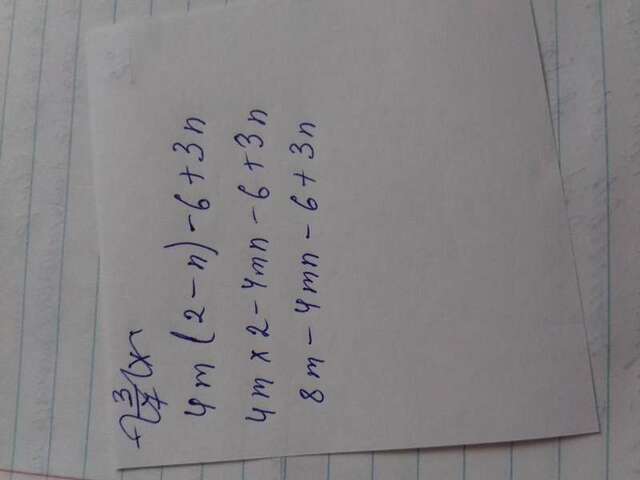 4m (2 - n) - 6 + 3n
4m × 2 - 4mn - 6 + 3n
8m - 4mn - 6 + 3n